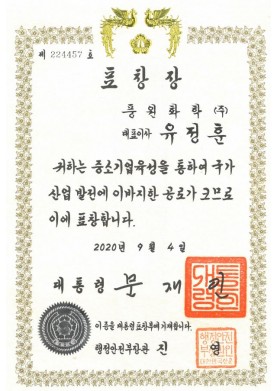 제 224457 호
표창장
풍원화학(주)
대표이사 유정훈
귀하는 중소기업육성을 통하여 국가
산업 발전에 이바지한 공로가 크므로
이에 표창합니다.
2020년 9월 4일
대통령 문재인
이 증을 대통령 표창부에 기재합니다.
행정안전부장관 진 영